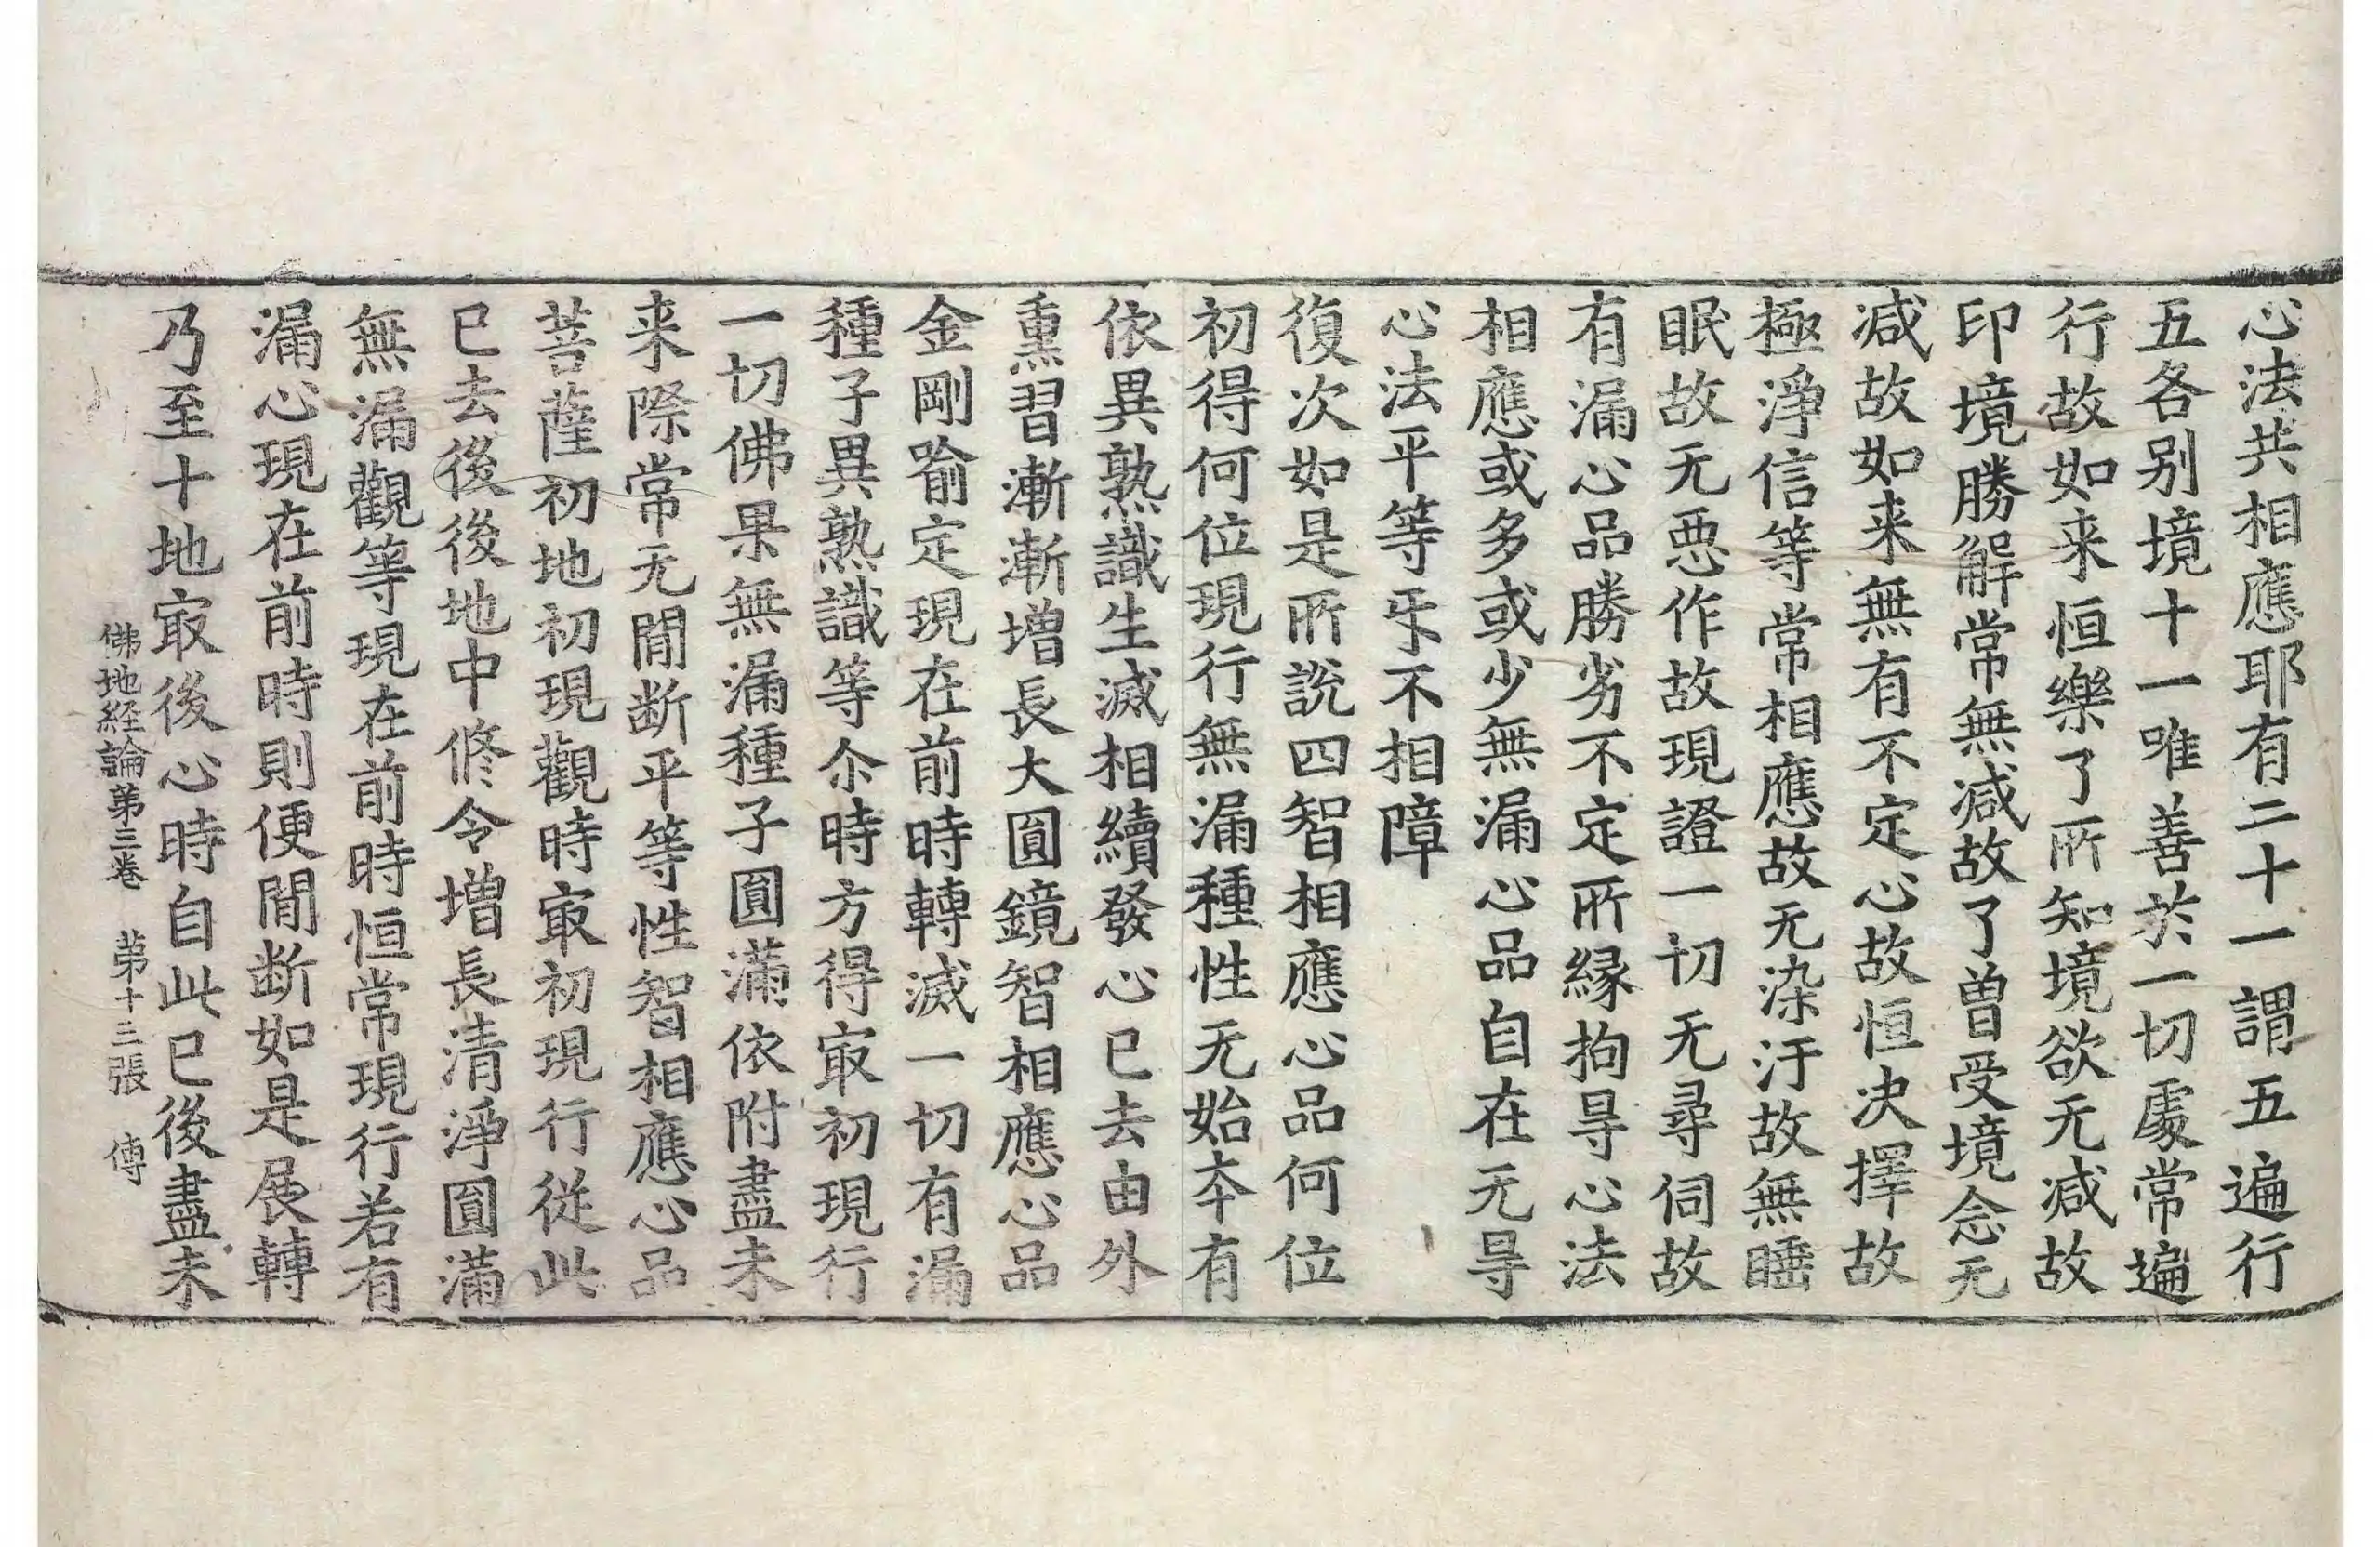 心法共相應耶有二十一謂五遍行
五各别境十一唯善於一切處常遍
行故如来恒樂了所知境欲无减故
印境勝解常無减故了曾受境念无
减故如来無有不定心故恒决擇故
極淨信等常相應故无染汙故無睡
眠故无惡作故現證一切无尋伺故
有漏心品勝劣不定所縁拘㝵心法
相應或多或少無漏心品自在无㝵
心法平等㸦不相障
復次如是所說四智相應心品何位
初得何位現行無漏種性无始夲有
依異熟識生滅相續發心已去由外
熏習漸漸增長大圓鏡智相應心品
金剛喻定現在前時轉滅一切有漏
種子異熟識等尒時方得㝡初現行
一切佛果無漏種子圓滿依附盡未
来際常无間断平等性智相應心品
菩薩初地初現觀時㝡初現行從此
已去後後地中修令增長清淨圓滿
無漏觀等現在前時恒常現行若有
漏心現在前時則便間断如是展轉
乃至十地㝡後心時自此已後盡未
佛地経論苐三卷　苐十二張　傳